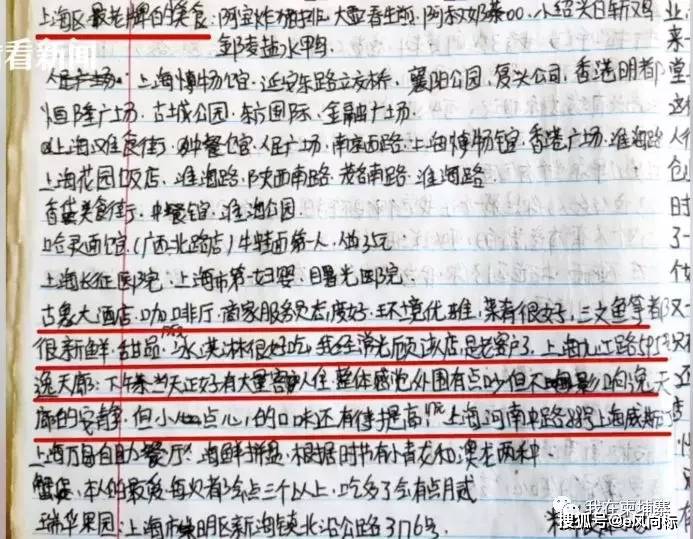 看看新闻
上海区最老牌的美食:阿宝炸猪排.大壶春生煎.阿叔奶茶.小绍兴白斩鸡
邹凌盐水鸭
人民广场.上海博物馆.延安东路立交桥.襄阳公园.复兴公司.香港名都
恒隆广场.古城公园.东方国际.金融广场
上海 美食街.中餐馆.人民广场.南京西路.上海博物馆.香港广场.淮海路
上海花园饭店.淮海路.陕西南路.茂名南路.淮海路
美食街.中餐馆.淮海公园
哈灵面馆.(广西北路店)牛蛙面第一人.做25元
上海长征医院.上海市第一妇婴.曙光医院
古象大酒店.咖啡厅.商家服务员态度好.环境优雅.菜肴很好.三文鱼等都
很新鲜.甜品.冰淇淋很好吃.我经常光顾该店.是老客户了.上海九江路595号
逸天廊:下午茶当天正好有大量客人住.整体感觉外围有点吵但不影响逸天
廊的安静.但小点心的口味还有待提高.上海河南中路 号上海威斯
上海万 自助餐厅:海鲜拼盘.根据时节有小青龙和澳龙两种
蟹 .本人的最爱.每次都会点三个以上.吃多了会有点月贰
瑞华果园:上海市崇明区新海镇北沿公路3176号
我在柬埔寨
搜狐号@ 风向标